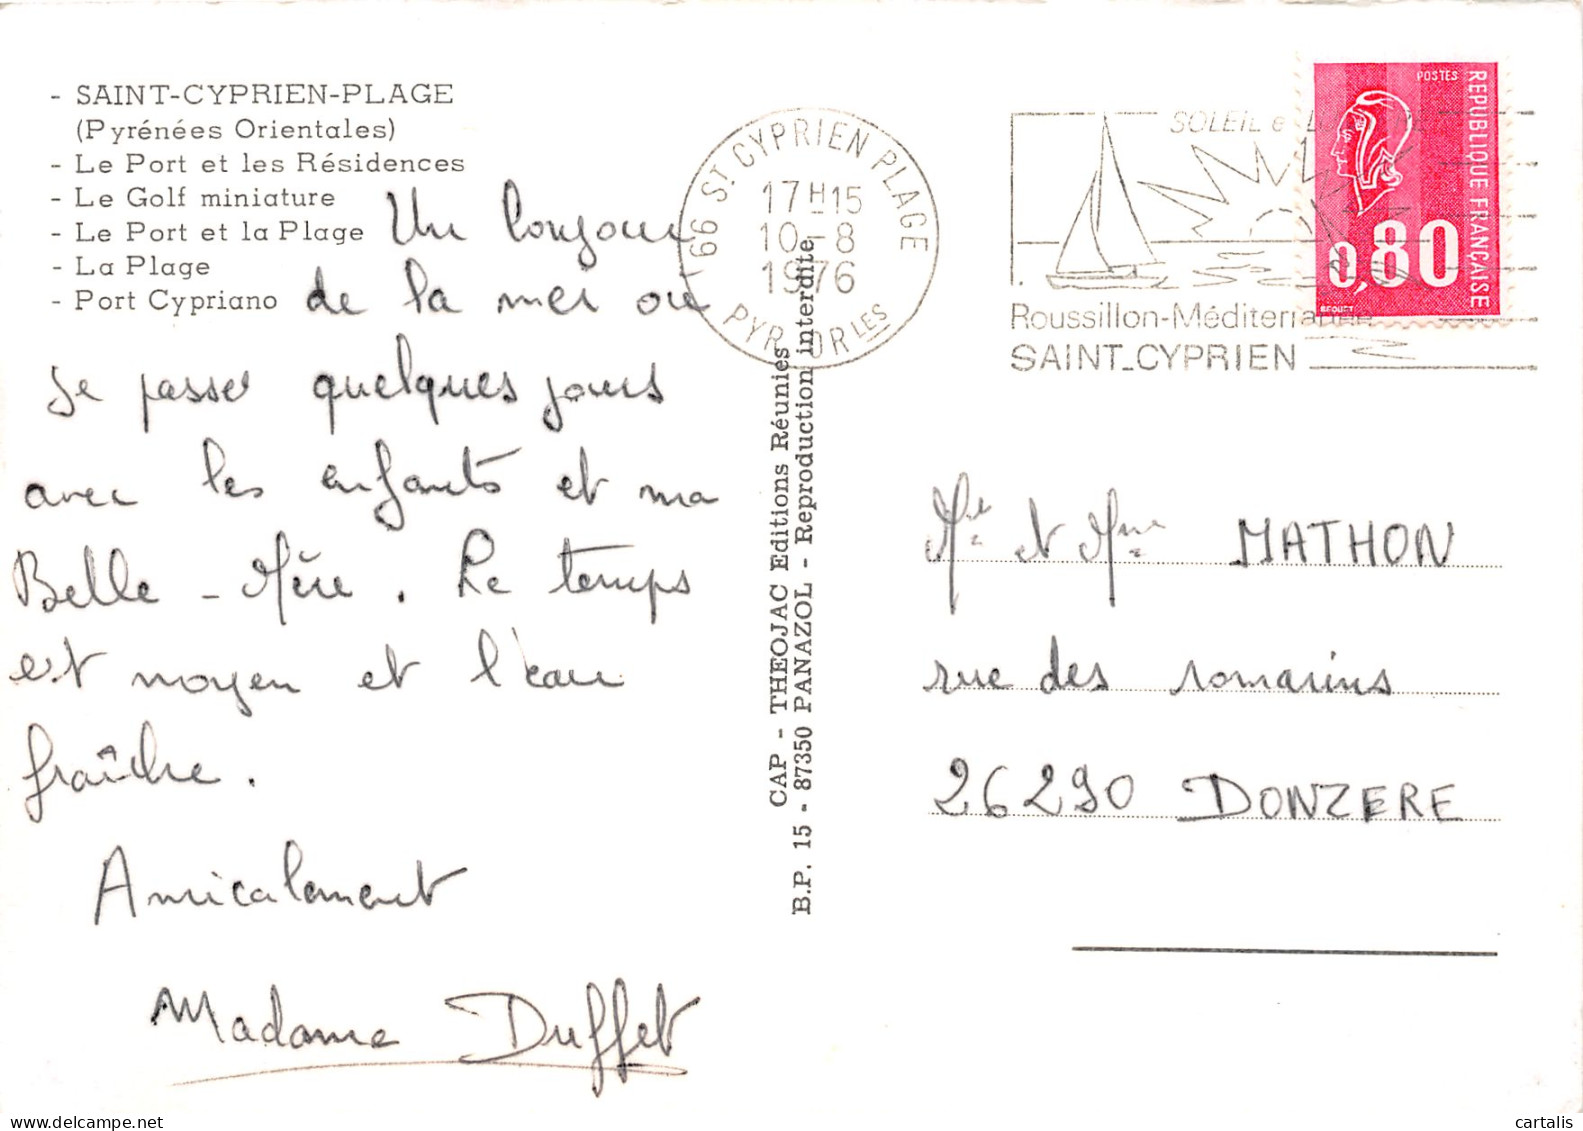 - SAINT-CYPRIEN-PLAGE
(Pyrénées Orientales)
- Le Port et les Résidences
- Le Golf miniature
- Le Port et la Plage
- La Plage
- Port Cypriano
Un bonjour
de la mer où
je passe quelques jours
avec les enfants et ma
Belle-Mère. Le temps
est moyen et l'eau
fraîche.
Amicalement
Madame Duffet
CAP - THEOJAC Editions Réunies
B.P. 15 - 87350 PANAZOL - Reproduction interdite
66 ST CYPRIEN PLAGE
17H15
10-8
1976
PYR. ORLES
SOLEIL
Roussillon-Méditerranée
SAINT-CYPRIEN
POSTES
REPUBLIQUE FRANÇAISE
0,80
BEQUET
et Mme MATHON
rue des romarins
26290 DONZERE
delcampe.net
cartalis